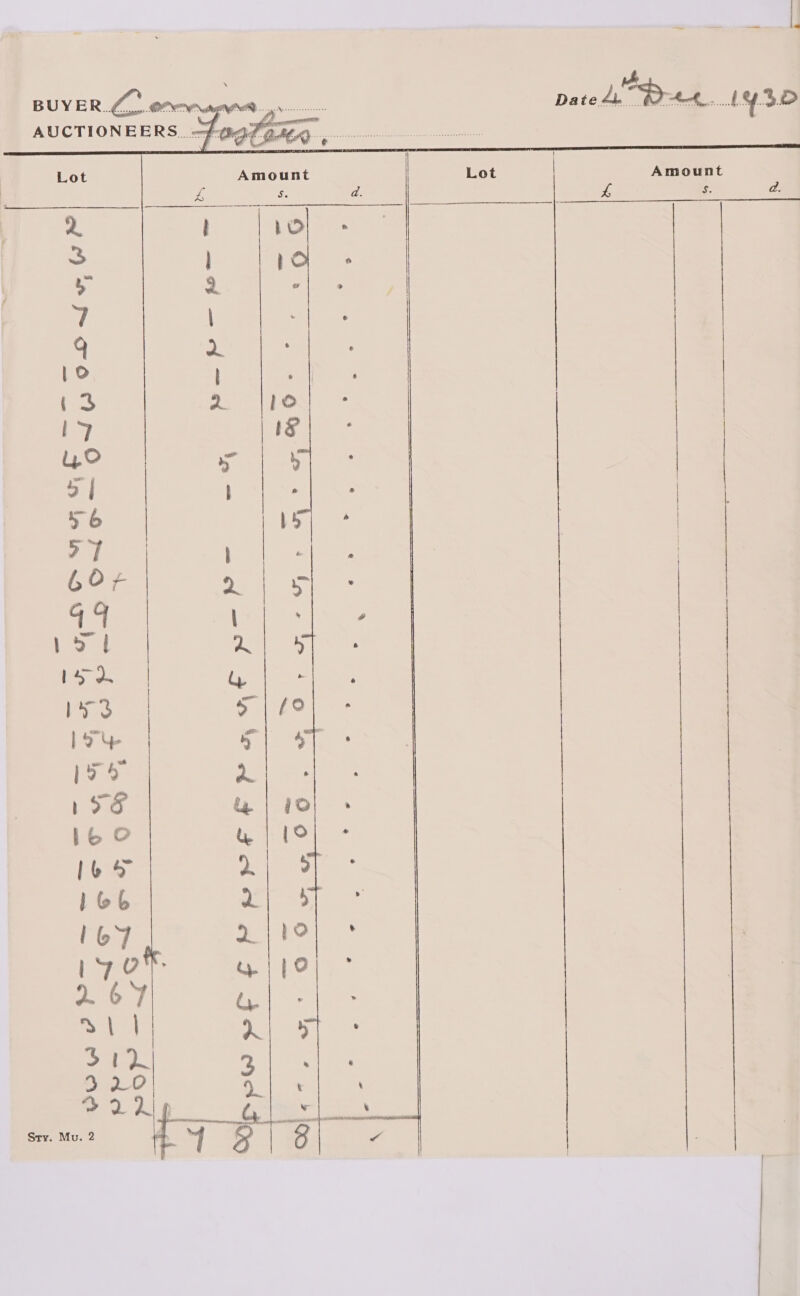 BUYER
Date 4th Dec. 1930
AUCTIONEERS Fosters.
Lot Amount Lot Amount
£ s. d. £ s. d.
2 1 10 -
3 1 10 -
5 2 - -
7 1 - -
9 2 - -
10 1 - -
13 2 10 -
17 18 -
40 5 5 -
51 1 - -
56 15 -
57 1 - -
60+ 2 5 -
99 1 - -
151 2 5 -
152 4 - -
153 5 10 -
154 5 5 -
155 2 - -
158 4 10 -
160 4 10 -
165 2 5 -
166 2 5 -
167 2 10 -
170 4 10 -
267 4 - -
311 2 5 -
312 3 - -
320 2 - -
322 4 - -
Sty. Mu. 2 £78 8 -